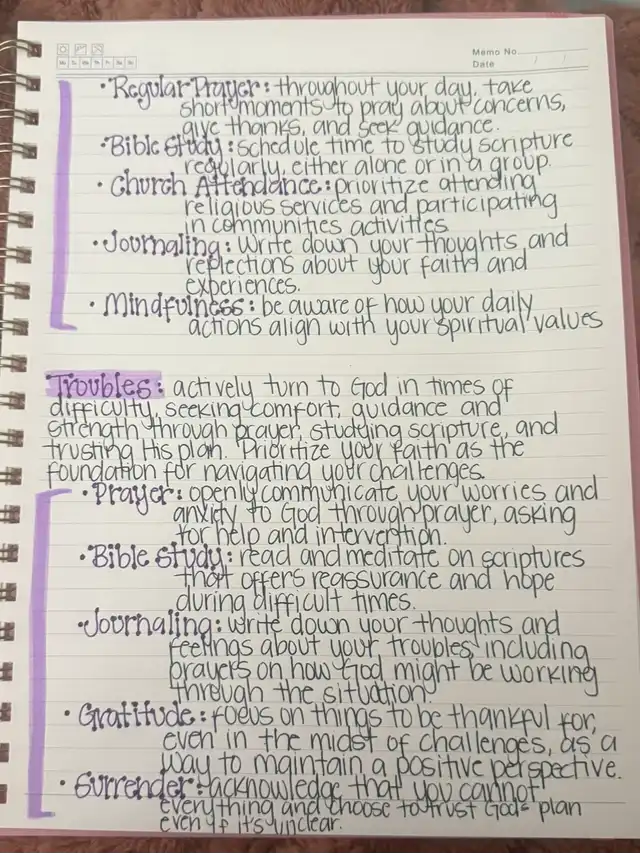 Memo No.
Date / /
Mo Tu We Th Fr Sa Su
• Regular Prayer: throughout your day, take
short moments to pray about concerns,
give thanks, and seek guidance.
• Bible Study: schedule time to study scripture
regularly, either alone or in a group.
• Church Attendance: prioritize attending
religious services and participating
in communities activities
• Journaling: Write down your thoughts, and
reflections about your faith and
experiences.
• Mindfulness: be aware of how your daily
actions align with your spiritual values
Troubles: actively turn to God in times of
difficulty, seeking comfort, guidance and
strength through prayer, studying scripture, and
trusting His plan. Prioritize your faith as the
foundation for navigating your challenges.
• Prayer: openly communicate your worries and
anxiety to God through prayer, asking
for help and intervention.
• Bible Study: read and meditate on scriptures
that offers reassurance and hope
during difficult times.
• Journaling: write down your thoughts and
feelings about your troubles, including
prayers on how God might be working
through the situation.
• Gratitude: focus on things to be thankful for,
even in the midst of challenges, as a
way to maintain a positive perspective.
• Surrender: acknowledge that you cannot
everything and choose to trust Gods plan
even if it's unclear.